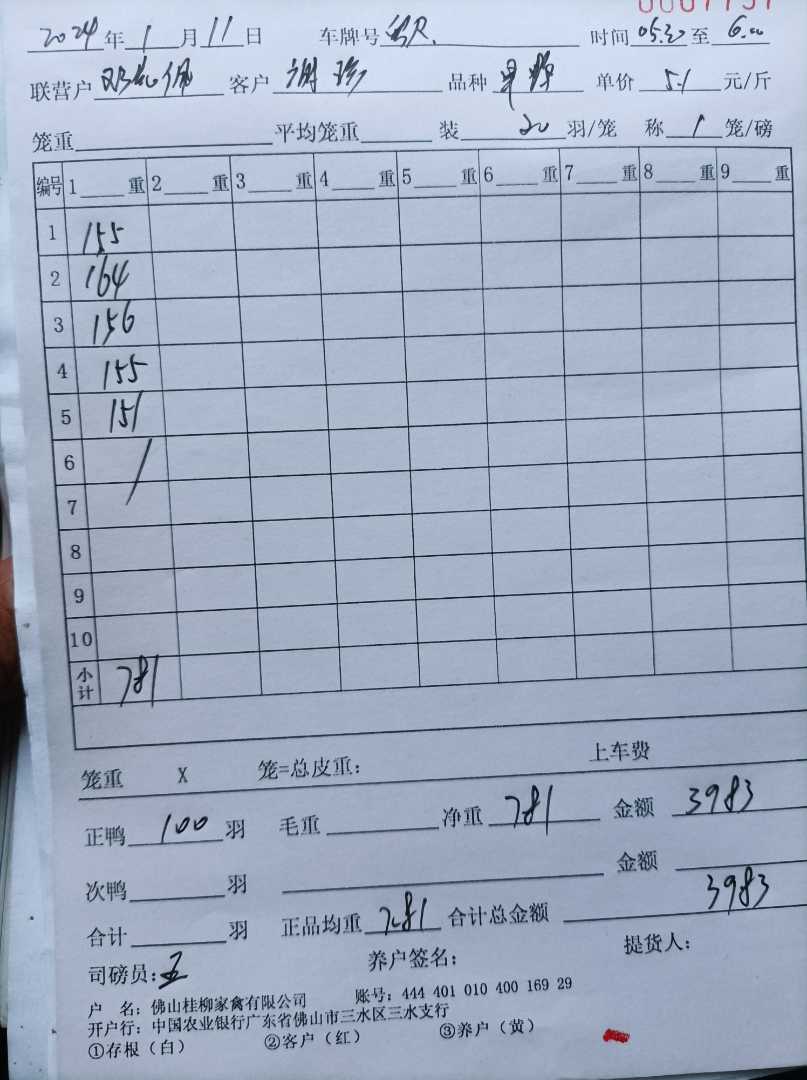 2024年1月11日 车牌号 时间 05.30至6.00
联营户 邓 佩 客户 谢珍 品种 单价 5.1 元/斤
笼重 平均笼重 装 20 羽/笼 称 1 笼/磅
编号 1 重 2 重 3 重 4 重 5 重 6 重 7 重 8 重 9 重
1 155
2 164
3 156
4 155
5 151
6 /
7
8
9
10
小计 781
笼重 X 笼=总皮重: 上车费
正鸭 100 羽 毛重 净重 781 金额 3983
次鸭 羽 金额
合计 羽 正品均重 7.81 合计总金额 3983
司磅员: 养户签名: 提货人:
户 名: 佛山桂柳家禽有限公司 账号: 444 401 010 400 169 29
开户行: 中国农业银行广东省佛山市三水区三水支行
①存根（白） ②客户（红） ③养户（黄）